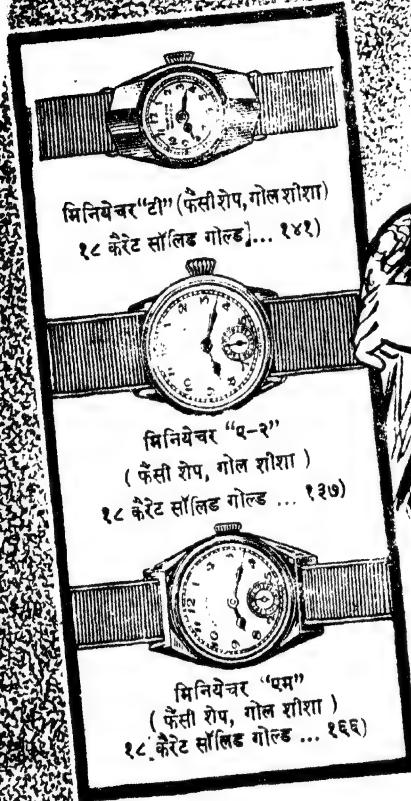 मिनियेचर "टी" (फैंसी शेप, गोल शीशा)
१८ कैरेट सॉलिड गोल्ड ... १४१)
मिनियेचर "ए-२"
( फैंसी शेप, गोल शीशा )
१८ कैरेट सॉलिड गोल्ड ... १३७)
मिनियेचर "एम"
( फैंसी शेप, गोल शीशा )
१८ कैरेट सॉलिड गोल्ड ... १६६)